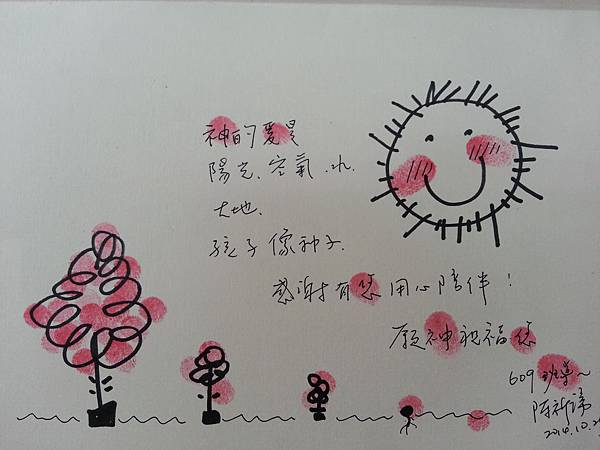 神的愛是
陽光、空氣、水、
大地、
孩子像种子、
感謝有您用心陪伴！
願神祝福您
609 班導～
2014.10.2